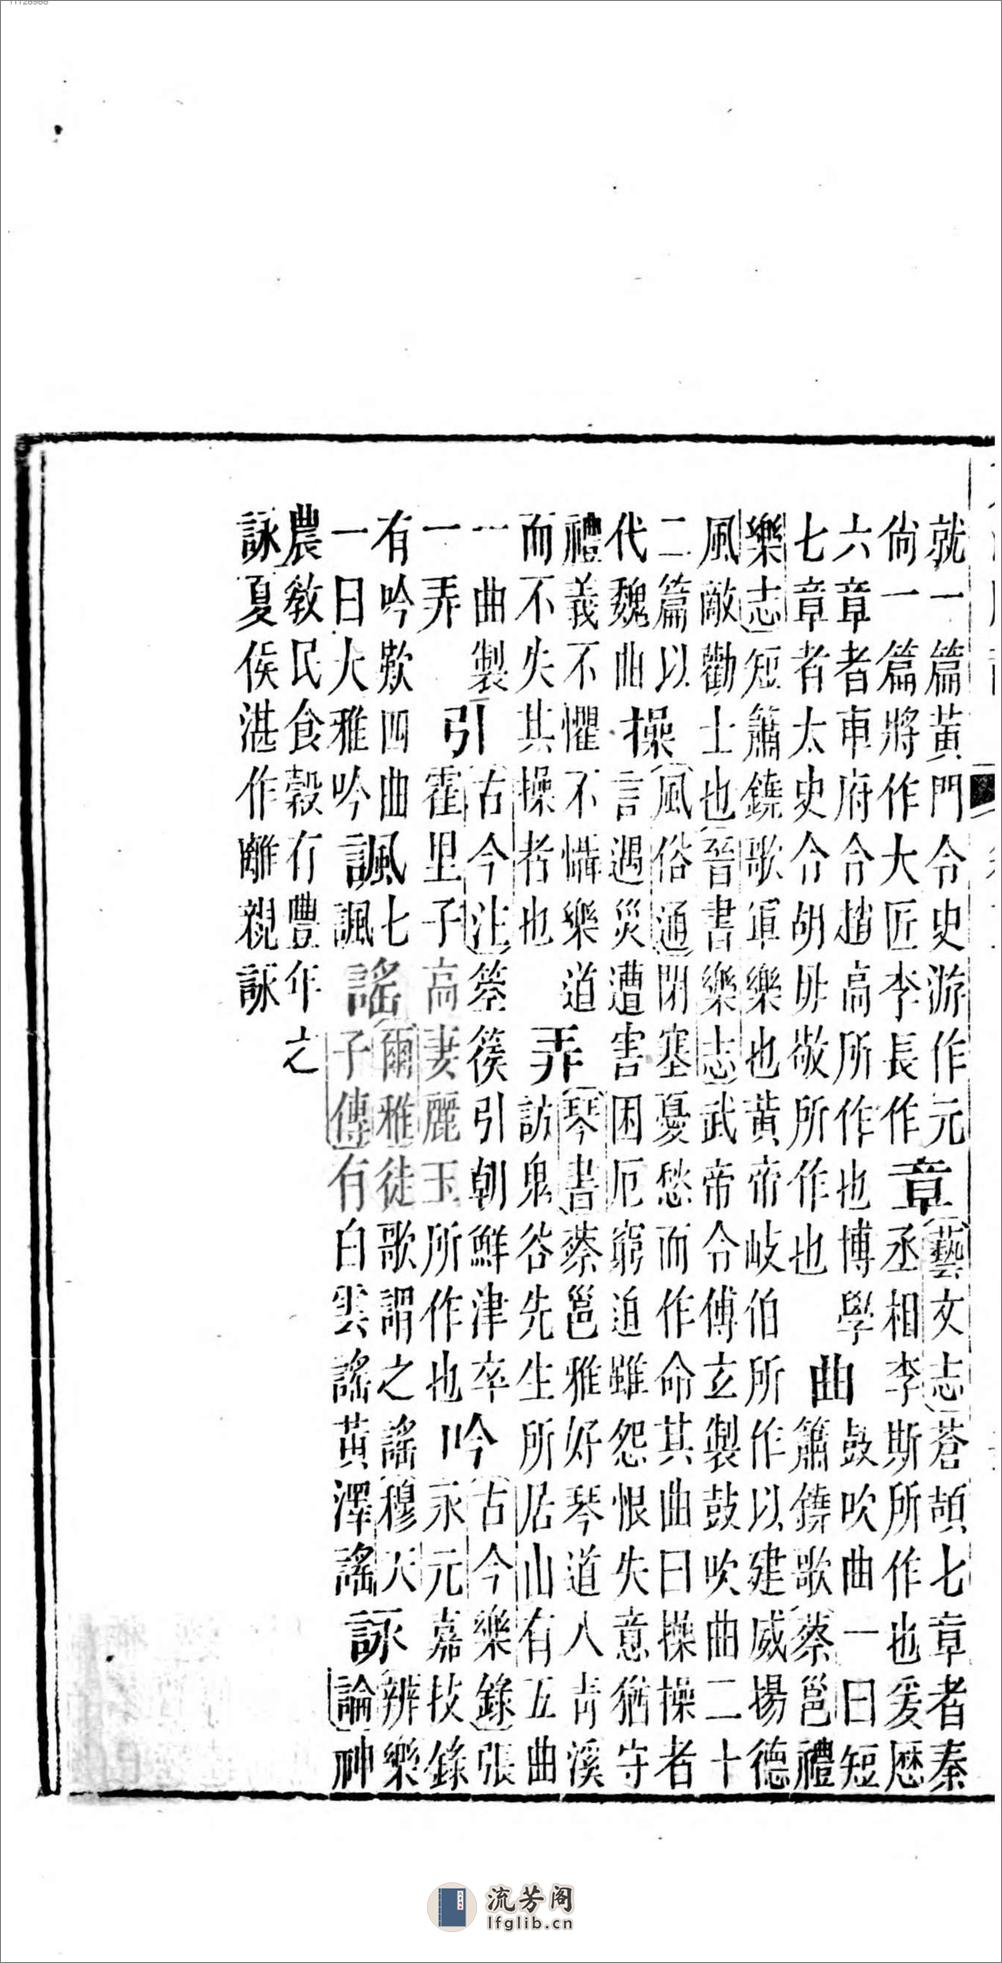 就一篇黃門令史游作元
尙一篇將作大匠李長作
章
藝文志蒼頡七章者秦
丞相李斯所作也爰歷
六章者車府令趙高所作也博學
七章者太史令胡毋敬所作也
曲
鼓吹曲一曰短
簫鐃歌蔡邕禮
樂志短簫鐃歌軍樂也黃帝岐伯所作以建威揚德
風敵勸士也晉書樂志武帝令傅玄製鼓吹曲二十
二篇以
代魏曲
操
風俗通閉塞憂愁而作命其曲曰操操者
言遇災遭害困厄窮迫雖怨恨失意猶守
禮義不懼不懾樂道
而不失其操者也
弄
琴書蔡邕雅好琴道入靑溪
訪鬼谷先生所居山有五曲
一曲製
一弄
引
古今注箜篌引朝鮮津卒
霍里子高妻麗玉所作也
吟
古今樂錄張
永元嘉技錄
有吟歎四曲
一曰大雅吟
諷
七
諷
謠
爾雅徒歌謂之謠穆天
子傳有白雲謠黃澤謠
詠
辨樂
論神
農敎民食穀有豐年之
詠夏侯湛作離親詠
流芳阁
lfglib.cn